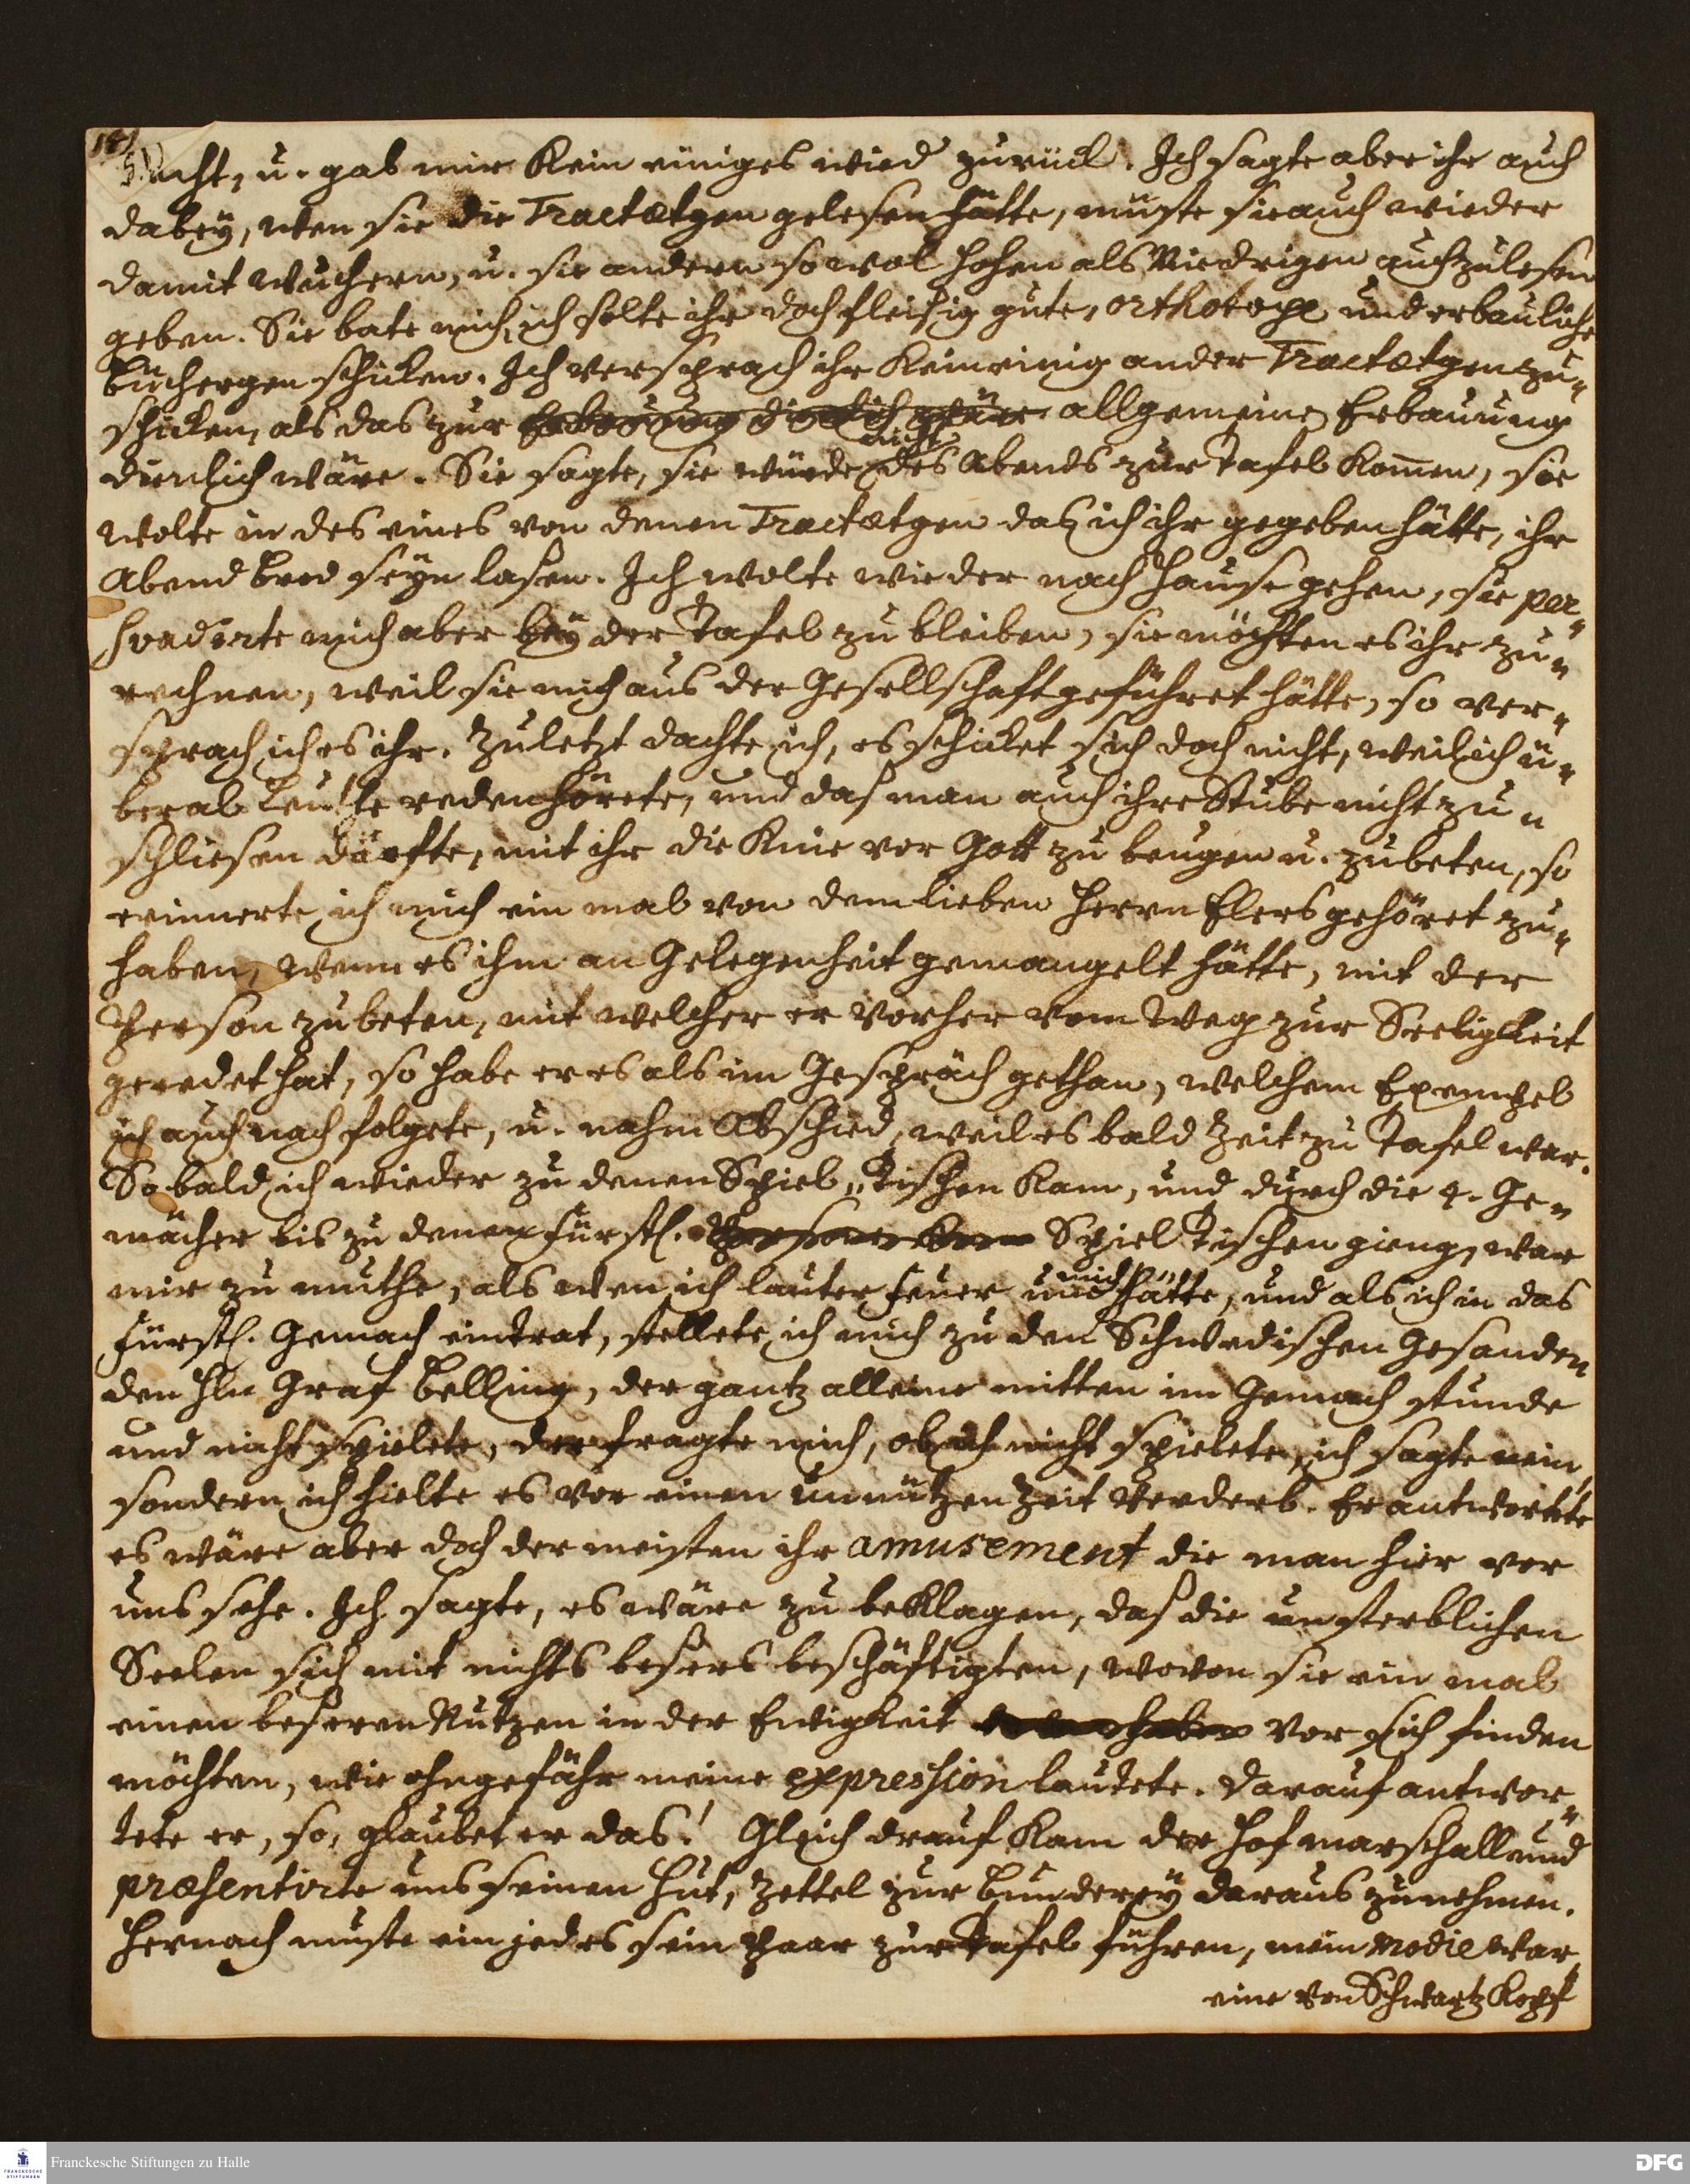 181
Nacht, u. gab mir kein einiges wied zurück. Ich sagte aber ihr auch
dabeÿ, wen sie die Tractætgen gelesen hätte, müste sie auch wieder
damit wuchern, u. sie andern so wol Hohen als Niedrigen auch zulesen
geben. Sie bate mich, ich solte ihr doch fleisig gute, orthotoxe und erbauliche
Büchergen schicken. Ich versprach ihr kein einig ander Tractætgen zu„
schicken, als das zur allgemeine Erbauung
dienlich wäre. Sie sagte, sie würde nicht des Abends zur Tafel kom̄en, sie
wolte in des eines von denen Tractætgen daß ich ihr gegeben hätte, ihr
Abend brod seyn lasen. Ich wolte wieder nach Hause gehen, sie per„
svadirte mich aber beÿ der Tafel zu bleiben, sie möchten es ihr zu„
rechnen, weil sie mich aus der Gesellschaft geführet hätte, so ver„
sprach ich es ihr. Zuletzt dachte ich, es schicket sich doch nicht, weil ich ü„
beral Leuthe reden hörete, und das man auch ihre Stube nicht zu„
schliesen dürfte, mit ihr die Knie vor Gott zu beugen u. zubeten, so
erinnerte ich mich ein mal von dem lieben Herrn Elers gehöret zu„
haben, wenn es ihm an Gelegenheit gemangelt hätte, mit der
Person zubeten, mit welcher er vorher vom Weg zur Seeligkeit
geredet hat, so habe er es als im Gespräch gethan, welchem Exempel
ich auch nach folgete, u. nahm Abschied, weil es bald Zeit zu Tafel war.
So bald ich wieder zu denen Spiel„Tischen kam, und durch die 4. Ge„
mächer bis zu denen Fürstl. Spiel Tischen gieng, war
mir zu muthe, als wen ich lauter Feuer um mich hätte, und als ich in das
Fürstl. Gemach eintrat, stellete ich mich zu den Schwedischen Gesanden
den Hln Graf Belling, der gantz alleine mitten im Gemach stunde
und nicht spielete, der fragte mich, ob ich nicht spielete, ich sagte nein,
sondern ich hielte es vor einen unnützen Zeit Verderb. Er antwortete
es wäre aber doch der meisten ihr amusement die man hier vor
uns sehe. Ich sagte, es wäre zu beklagen, das die unsterblichen
Seelen sich mit nichts besers beschäftigten, wovon sie ein mal
einen beseren Nutzen in der Ewigkeit vor sich finden
möchten, wie ohngefähr meine expression lautete. Darauf antwor„
tete er, so, glaubet er das! Gleich drauf kam der Hof marschall und
præsentirte uns seinen Hut, Zettel zur Bunderey daraus zunehmen.
Hernach muste ein jedes sein Paar zur Tafel führen, mein Modie war
eine von Schwartz Kopf
Franckesche Stiftungen zu Halle
DFG